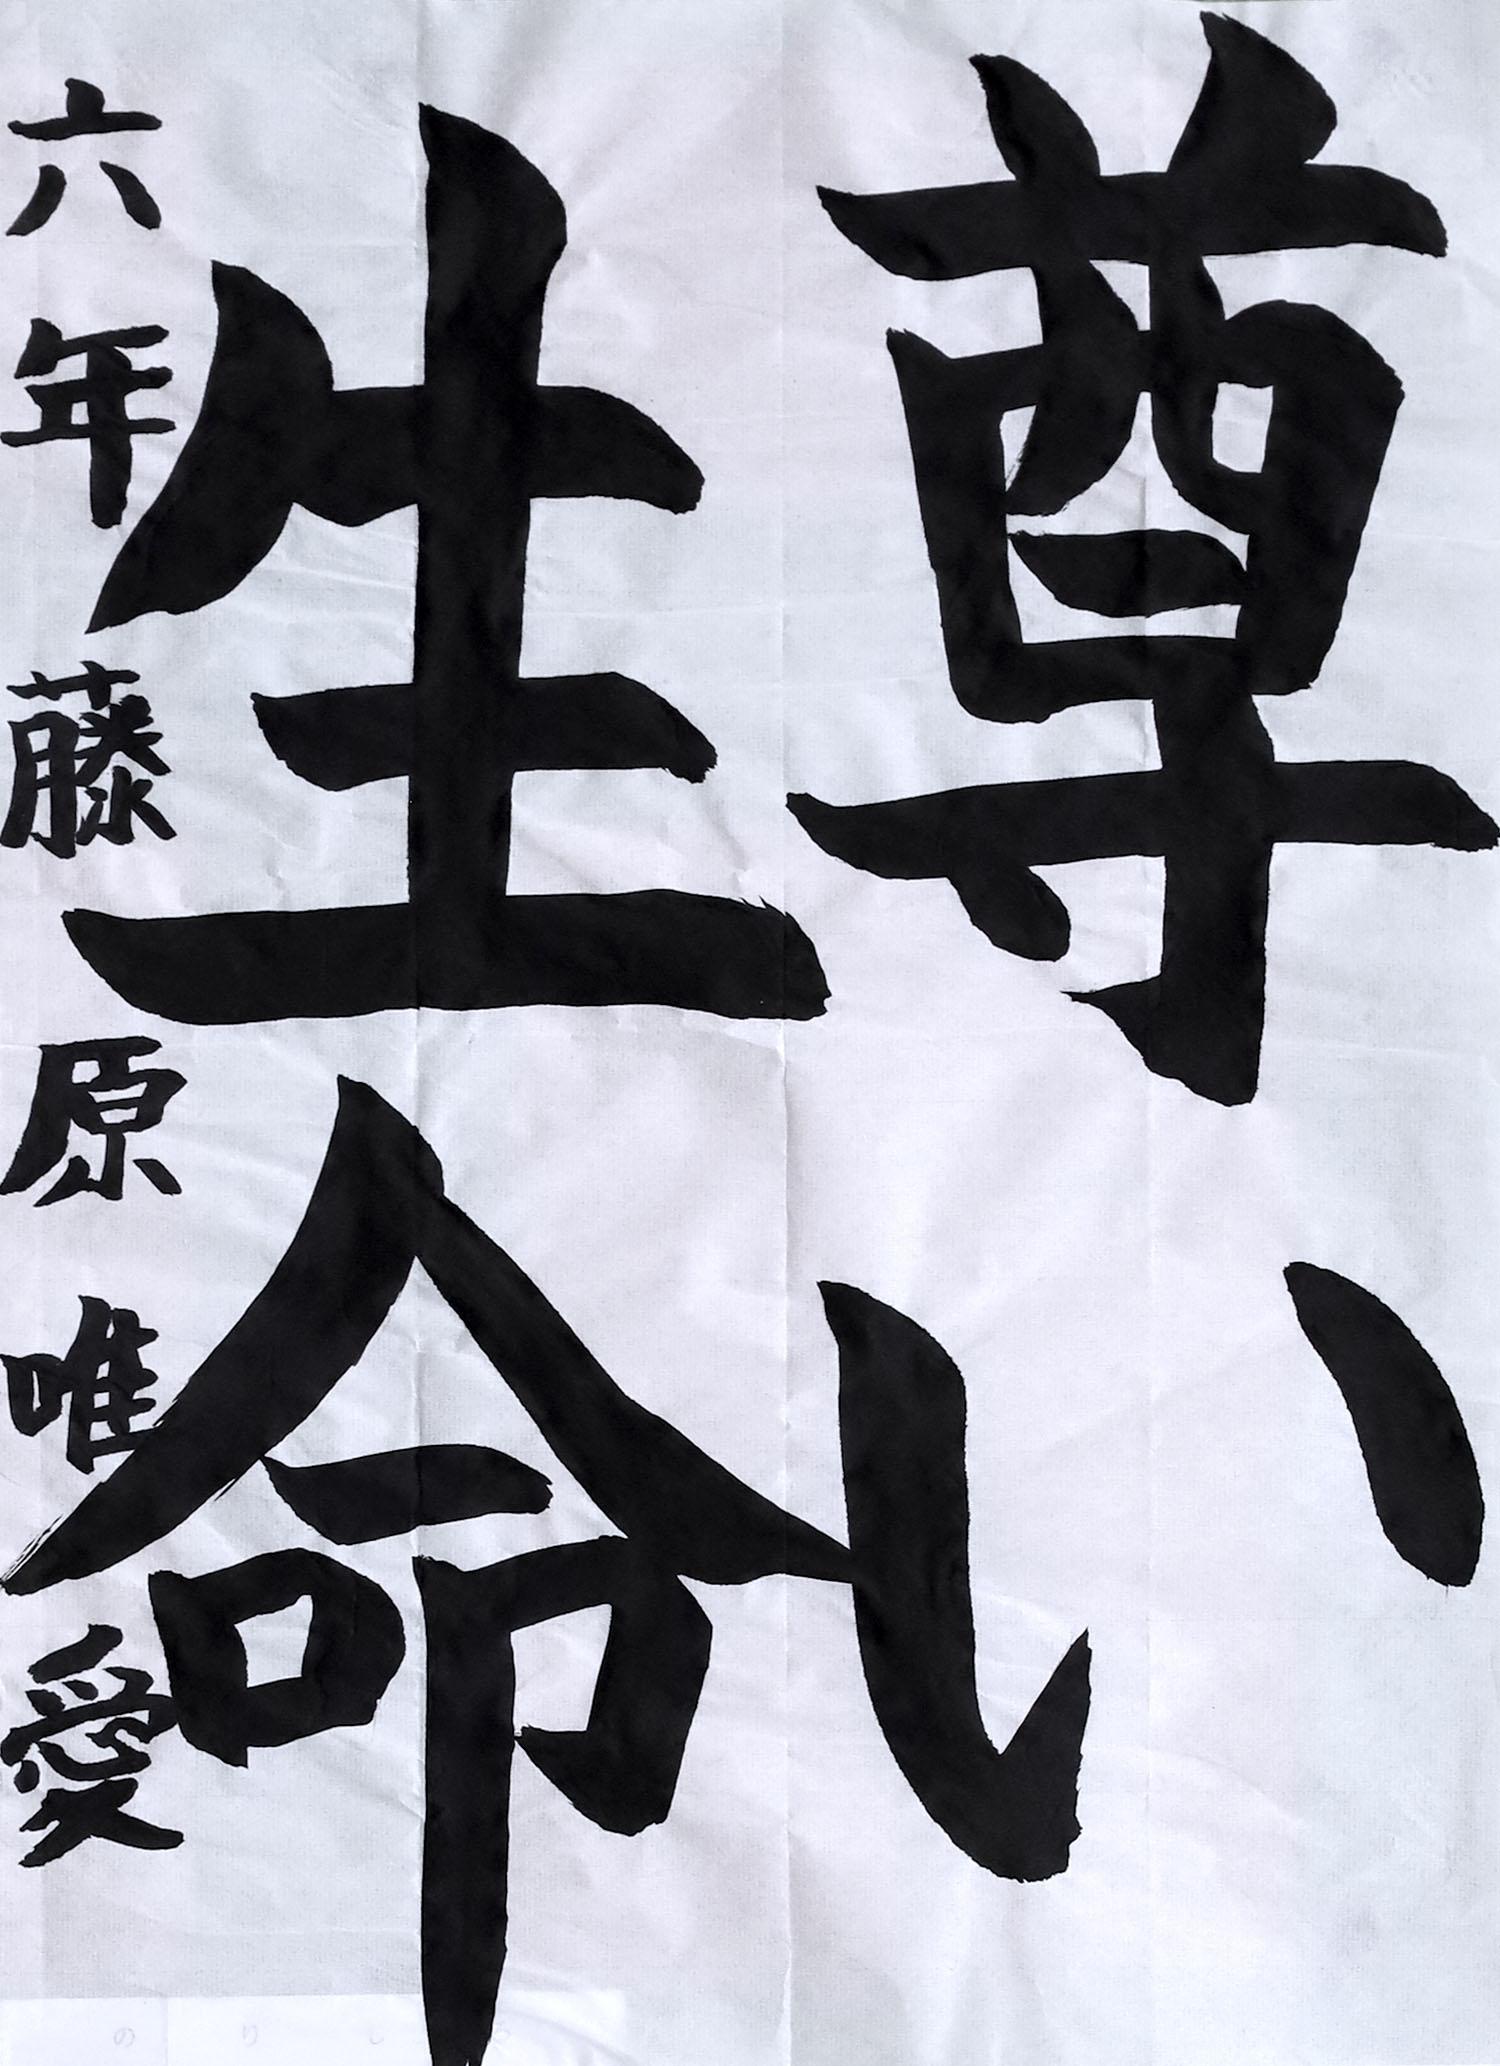 尊い
生命
六年藤原唯愛